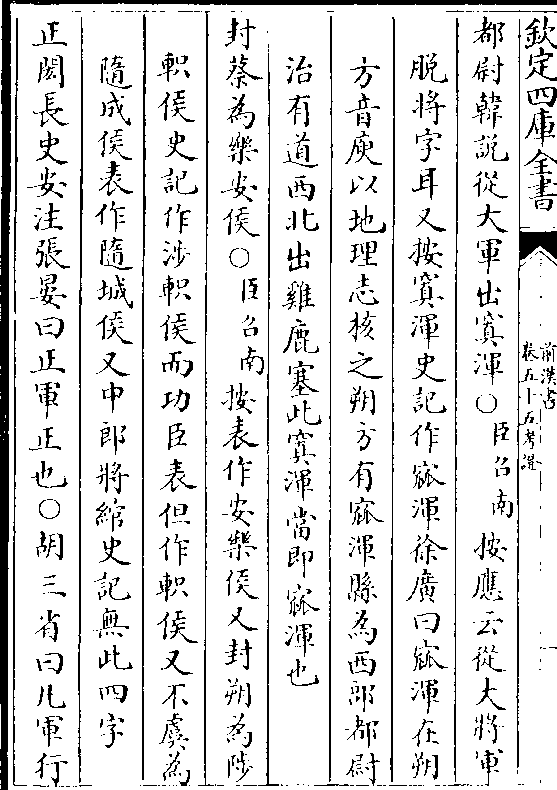 欽定四庫全書
前漢書
卷五十五考證
都尉韓説從大軍出窴渾○臣召南按應云從大將軍
脱將字耳又按窴渾史記作窳渾徐廣曰窳渾在朔
方音庾以地理志核之朔方有窳渾縣為西部都尉
治有道西北出雞鹿塞此窴渾當即窳渾也
封蔡為樂安侯○臣召南按表作安樂侯又封朔為陟
軹侯史記作涉軹侯而功臣表但作軹侯又不虞為
隨成侯表作隨城侯又中郎將綰史記無此四字
正閎長史安注張晏曰正軍正也○胡三省曰凡軍行